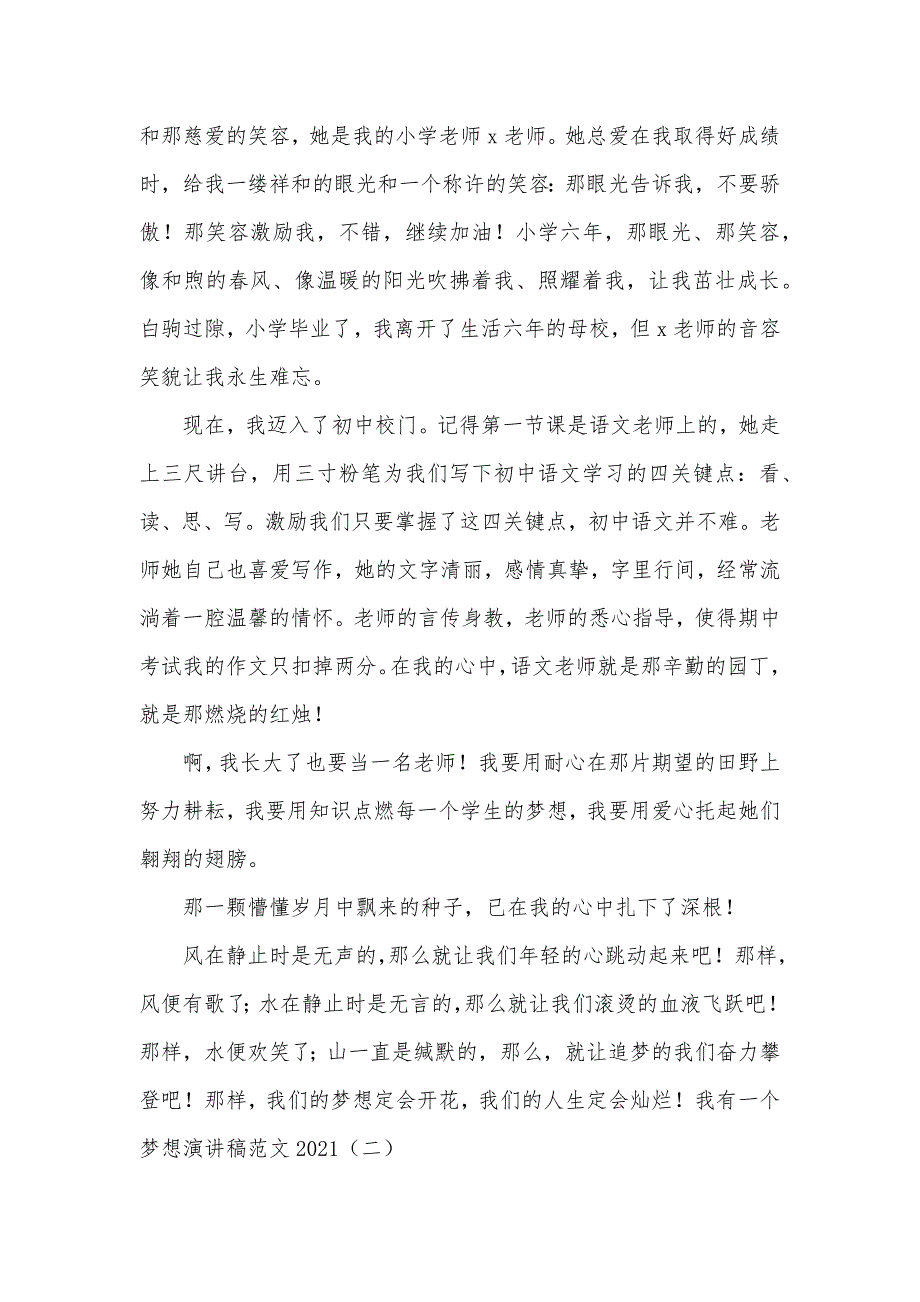 和那慈爱的笑容，她是我的小学老师 x 老师。她总爱在我取得好成绩
时，给我一缕祥和的眼光和一个称许的笑容：那眼光告诉我，不要骄
傲！那笑容激励我，不错，继续加油！小学六年，那眼光、那笑容，
像和煦的春风、像温暖的阳光吹拂着我、照耀着我，让我茁壮成长。
白驹过隙，小学毕业了，我离开了生活六年的母校，但 x 老师的音容
笑貌让我永生难忘。
现在，我迈入了初中校门。记得第一节课是语文老师上的，她走
上三尺讲台，用三寸粉笔为我们写下初中语文学习的四关键点：看、
读、思、写。激励我们只要掌握了这四关键点，初中语文并不难。老
师她自己也喜爱写作，她的文字清丽，感情真挚，字里行间，经常流
淌着一腔温馨的情怀。老师的言传身教，老师的悉心指导，使得期中
考试我的作文只扣掉两分。在我的心中，语文老师就是那辛勤的园丁，
就是那燃烧的红烛！
啊，我长大了也要当一名老师！我要用耐心在那片期望的田野上
努力耕耘，我要用知识点燃每一个学生的梦想，我要用爱心托起她们
翱翔的翅膀。
那一颗懵懂岁月中飘来的种子，已在我的心中扎下了深根！
风在静止时是无声的，那么就让我们年轻的心跳动起来吧！那样，
风便有歌了；水在静止时是无言的，那么就让我们滚烫的血液飞跃吧！
那样，水便欢笑了；山一直是缄默的，那么，就让追梦的我们奋力攀
登吧！那样，我们的梦想定会开花，我们的人生定会灿烂！我有一个
梦想演讲稿范文 2021（二）